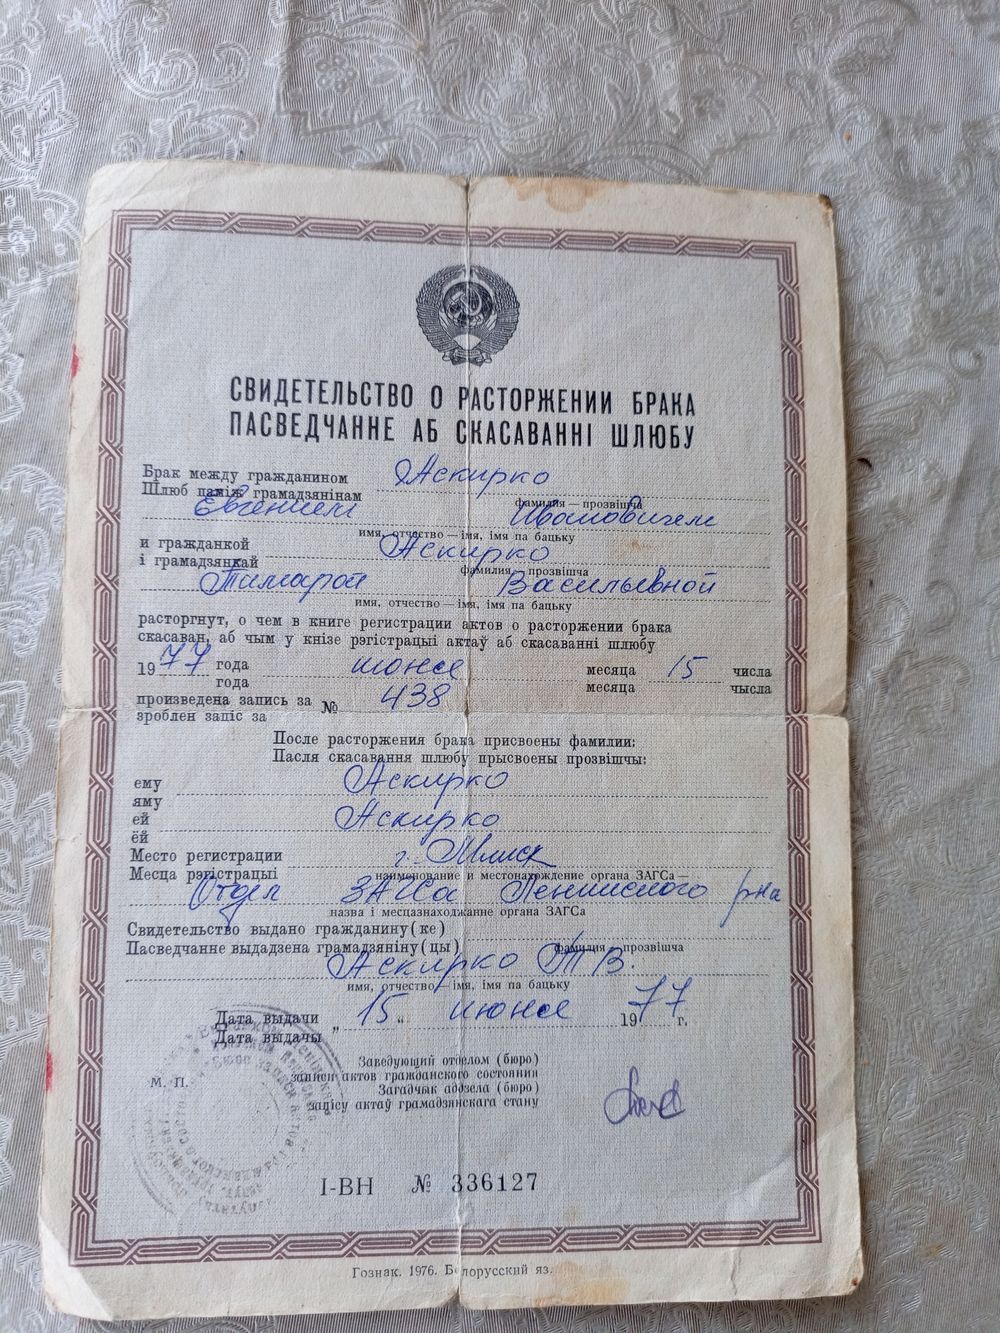 СВИДЕТЕЛЬСТВО О РАСТОРЖЕНИИ БРАКА
ПАСВЕДЧАННЕ АБ СКАСАВАННІ ШЛЮБУ
Брак между гражданином Аскирко
Шлюб паміж грамадзянінам
фамилия — прозвішча
Евгением Ивановичем
имя, отчество — імя, імя па бацьку
и гражданкой Аскирко
і грамадзянкай
фамилия — прозвішча
Тамарой Васильевной
имя, отчество — імя, імя па бацьку
расторгнут, о чем в книге регистрации актов о расторжении брака
скасаван, аб чым у кнізе рэгістрацыі актаў аб скасаванні шлюбу
1977 года июня месяца 15 числа
года месяца чысла
произведена запись за № 438
зроблен запіс за
После расторжения брака присвоены фамилии:
Пасля скасавання шлюбу прысвоены прозвішчы:
ему Аскирко
яму
ей Аскирко
ёй
Место регистрации г. Минск
Месца рэгістрацыі
наименование и местонахождение органа ЗАГСа —
Отдел ЗАГСа Ленинского р-на
назва і месцазнаходжанне органа ЗАГСа
Свидетельство выдано гражданину(ке)
Пасведчанне выдадзена грамадзяніну(цы)
фамилия — прозвішча
Аскирко Т В.
имя, отчество — імя, імя па бацьку
Дата выдачи „15“ июня 1977 г.
Дата выдачы
Заведующий отделом (бюро)
записи актов гражданского состояния
Загадчык аддзела (бюро)
запісу актаў грамадзянскага стану
М. П.
I-ВН № 336127
Гознак. 1976. Белорусский яз.